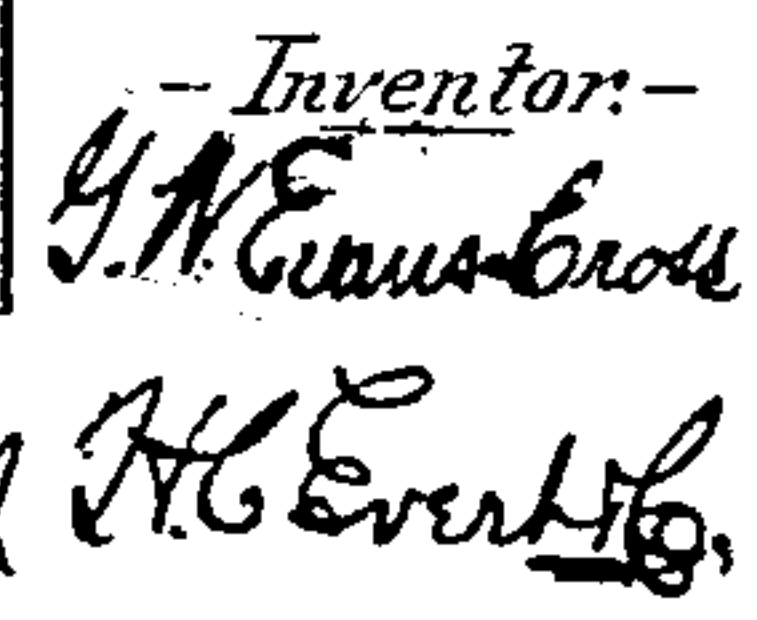 - Inventor. -
G. W. Evans-Cross
H. C. Evert & Co,